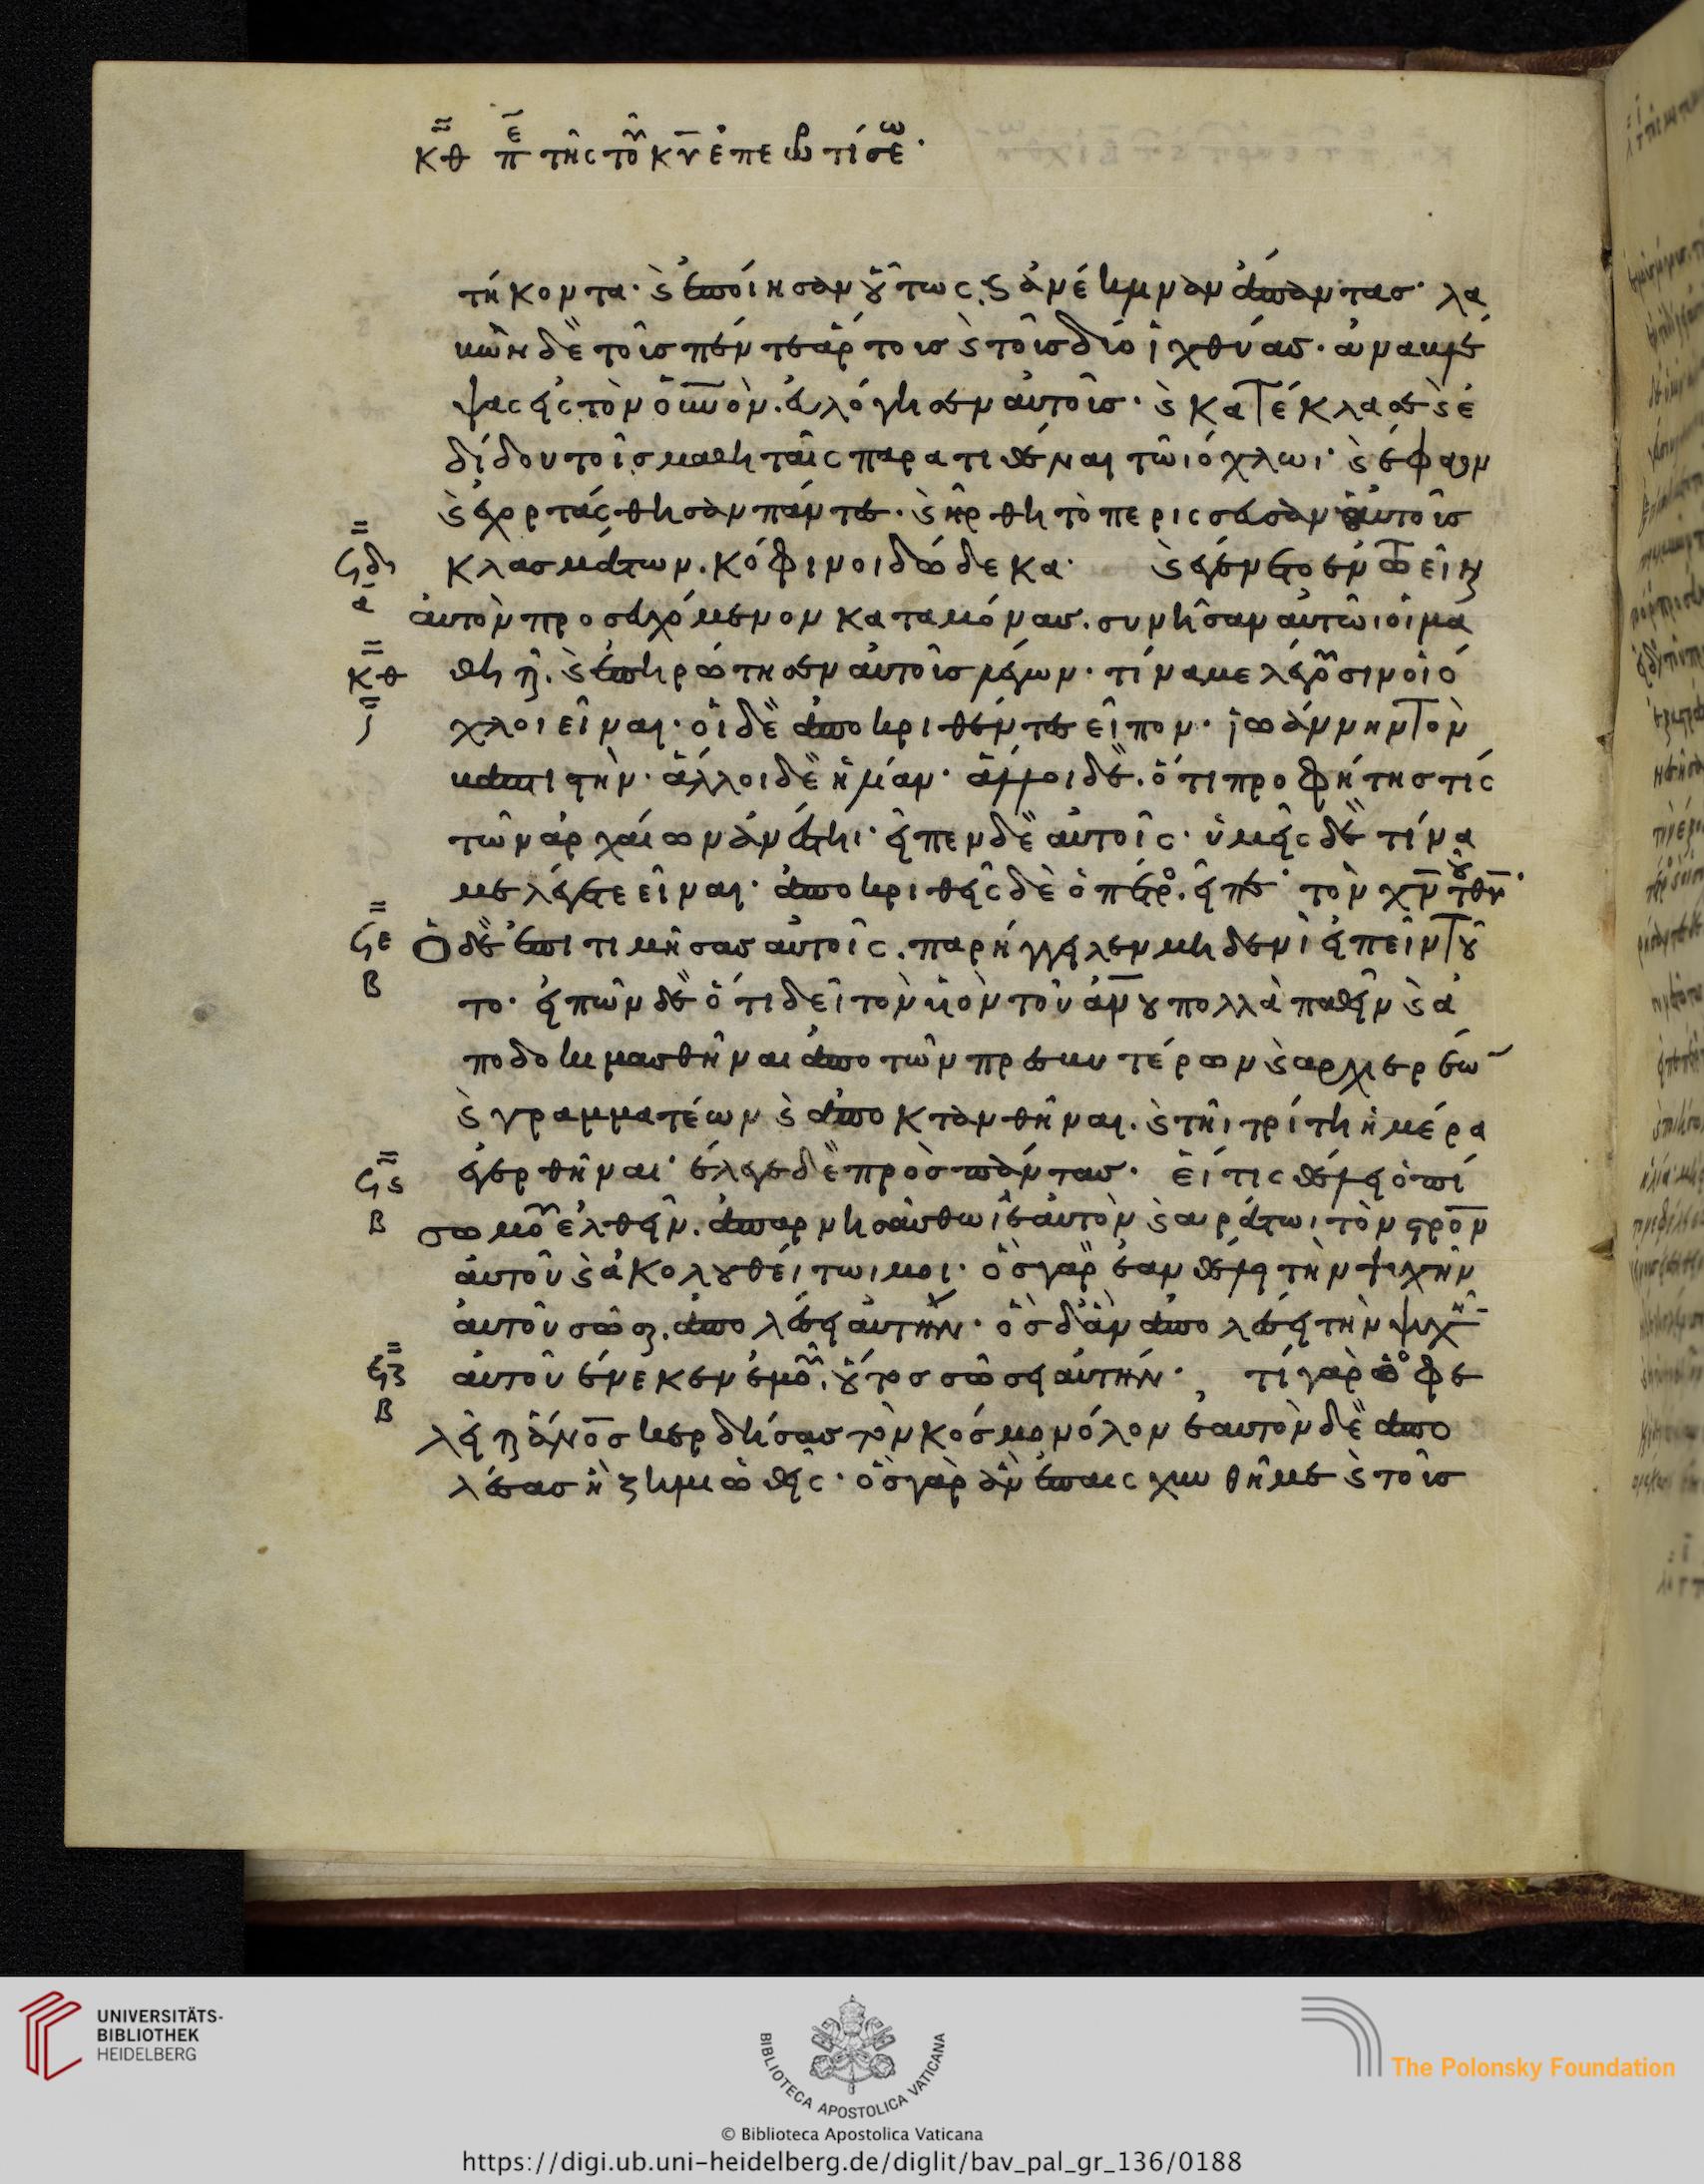 κθ πε της του κυ επερωτήσεως·
τήκοντα· ϗ ἐποίησαν οὕτως. ϗ ἀνέκλιναν ἅπαντας· λα
βὼν δὲ τοῖς πέντε ἄρτοις ϗ τοῖς δύο ἰχθύας· ἀναβλέ
ψας εἰς τὸν οὐνὸν. εὐλόγησεν αὐτοῖς· ϗ κατέκλασε ϗ ἐ
δίδου τοῖς μαθηταῖς παρατιθέναι τῶι ὄχλωι· ϗ ἔφαγον
ϗ ἐχορτάσθησαν πάντες· ϗ ἤρθη τὸ περισσεῦσαν αὐτοῖς
κλασμάτων. κόφινοι δώδεκα· ϗ ἐγένετο ἐν τῶ εἶναι
αὐτὸν προσευχόμενον καταμόνας. συνῆσαν αὐτῶι οἱ μα
θηταὶ. ϗ ἐπηρώτησεν αὐτοῖς λέγων· τίνα με λέγουσιν οἱ ὄ
χλοι εἶναι· οἱ δὲ ἀποκριθέντες εἶπον· ἰωάννην τὸν
βαπτιστὴν· ἄλλοι δὲ ἡλίαν· ἄλλοι δὲ. ὅτι προφήτης τίς
τῶν ἀρχαίων ἀνέστηι· εἶπεν δὲ αὐτοῖς· ὑμεῖς δὲ τίνα
με λέγετε εἶναι· ἀποκριθεὶς δὲ ὁ πέτρος. εἶπε· τὸν χν τοῦ θυ·
Ὁ δὲ ἐπιτιμήσας αὐτοῖς. παρήγγειλεν μηδενὶ εἰπεῖν τοῦ
το· εἰπὼν δὲ ὅτι δεῖ τὸν υἱὸν τοῦ ανου πολλὰ παθεῖν ϗ ἀ
ποδοκιμασθῆναι ἀπὸ τῶν πρεσβυτέρων ϗ αρχιερέων
ϗ γραμματέων ϗ ἀποκτανθῆναι. ϗ τῆι τρίτη ἡμέρα
ἐγερθῆναι· ἔλεγε δὲ πρὸς πάντας· εἴ τις θέλει ὀπί
σω μου ἐλθεῖν. ἀπαρνησάσθωι ἑαυτὸν ϗ αιράτωι τὸν στρον
αὐτοῦ ϗ ἀκολουθείτωι μοι· ὃς γὰρ ἐὰν θέλη τὴν ψυχὴν
αὐτοῦ σῶσαι. ἀπολέσει αὐτήν· ὃς δ' ἂν ἀπολέσει τὴν ψυχὴν
αὐτοῦ ἕνεκεν ἐμοῦ. οὗτος σώσει αὐτήν· τί γὰρ ὠφε
λεῖται ἄνος κερδήσας τὸν κόσμον ὅλον ἑαυτὸν δὲ ἀπο
λέσας ἢ ζημιωθείς· ὃς γὰρ ἂν ἐπαισχυνθῆ με ϗ τοῖς
ϟδ
α
κθ
ϟε
β
ϟϛ
β
ϟζ
β
UNIVERSITÄTS-
BIBLIOTHEK
HEIDELBERG
BIBLIOTECA APOSTOLICA VATICANA
© Biblioteca Apostolica Vaticana
The Polonsky Foundation
https://digi.ub.uni-heidelberg.de/diglit/bav_pal_gr_136/0188